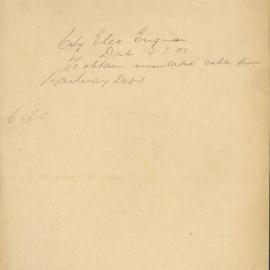 City Elec Engineer
Date 14.3.08
To obtain insulated cable from
Railway Dept